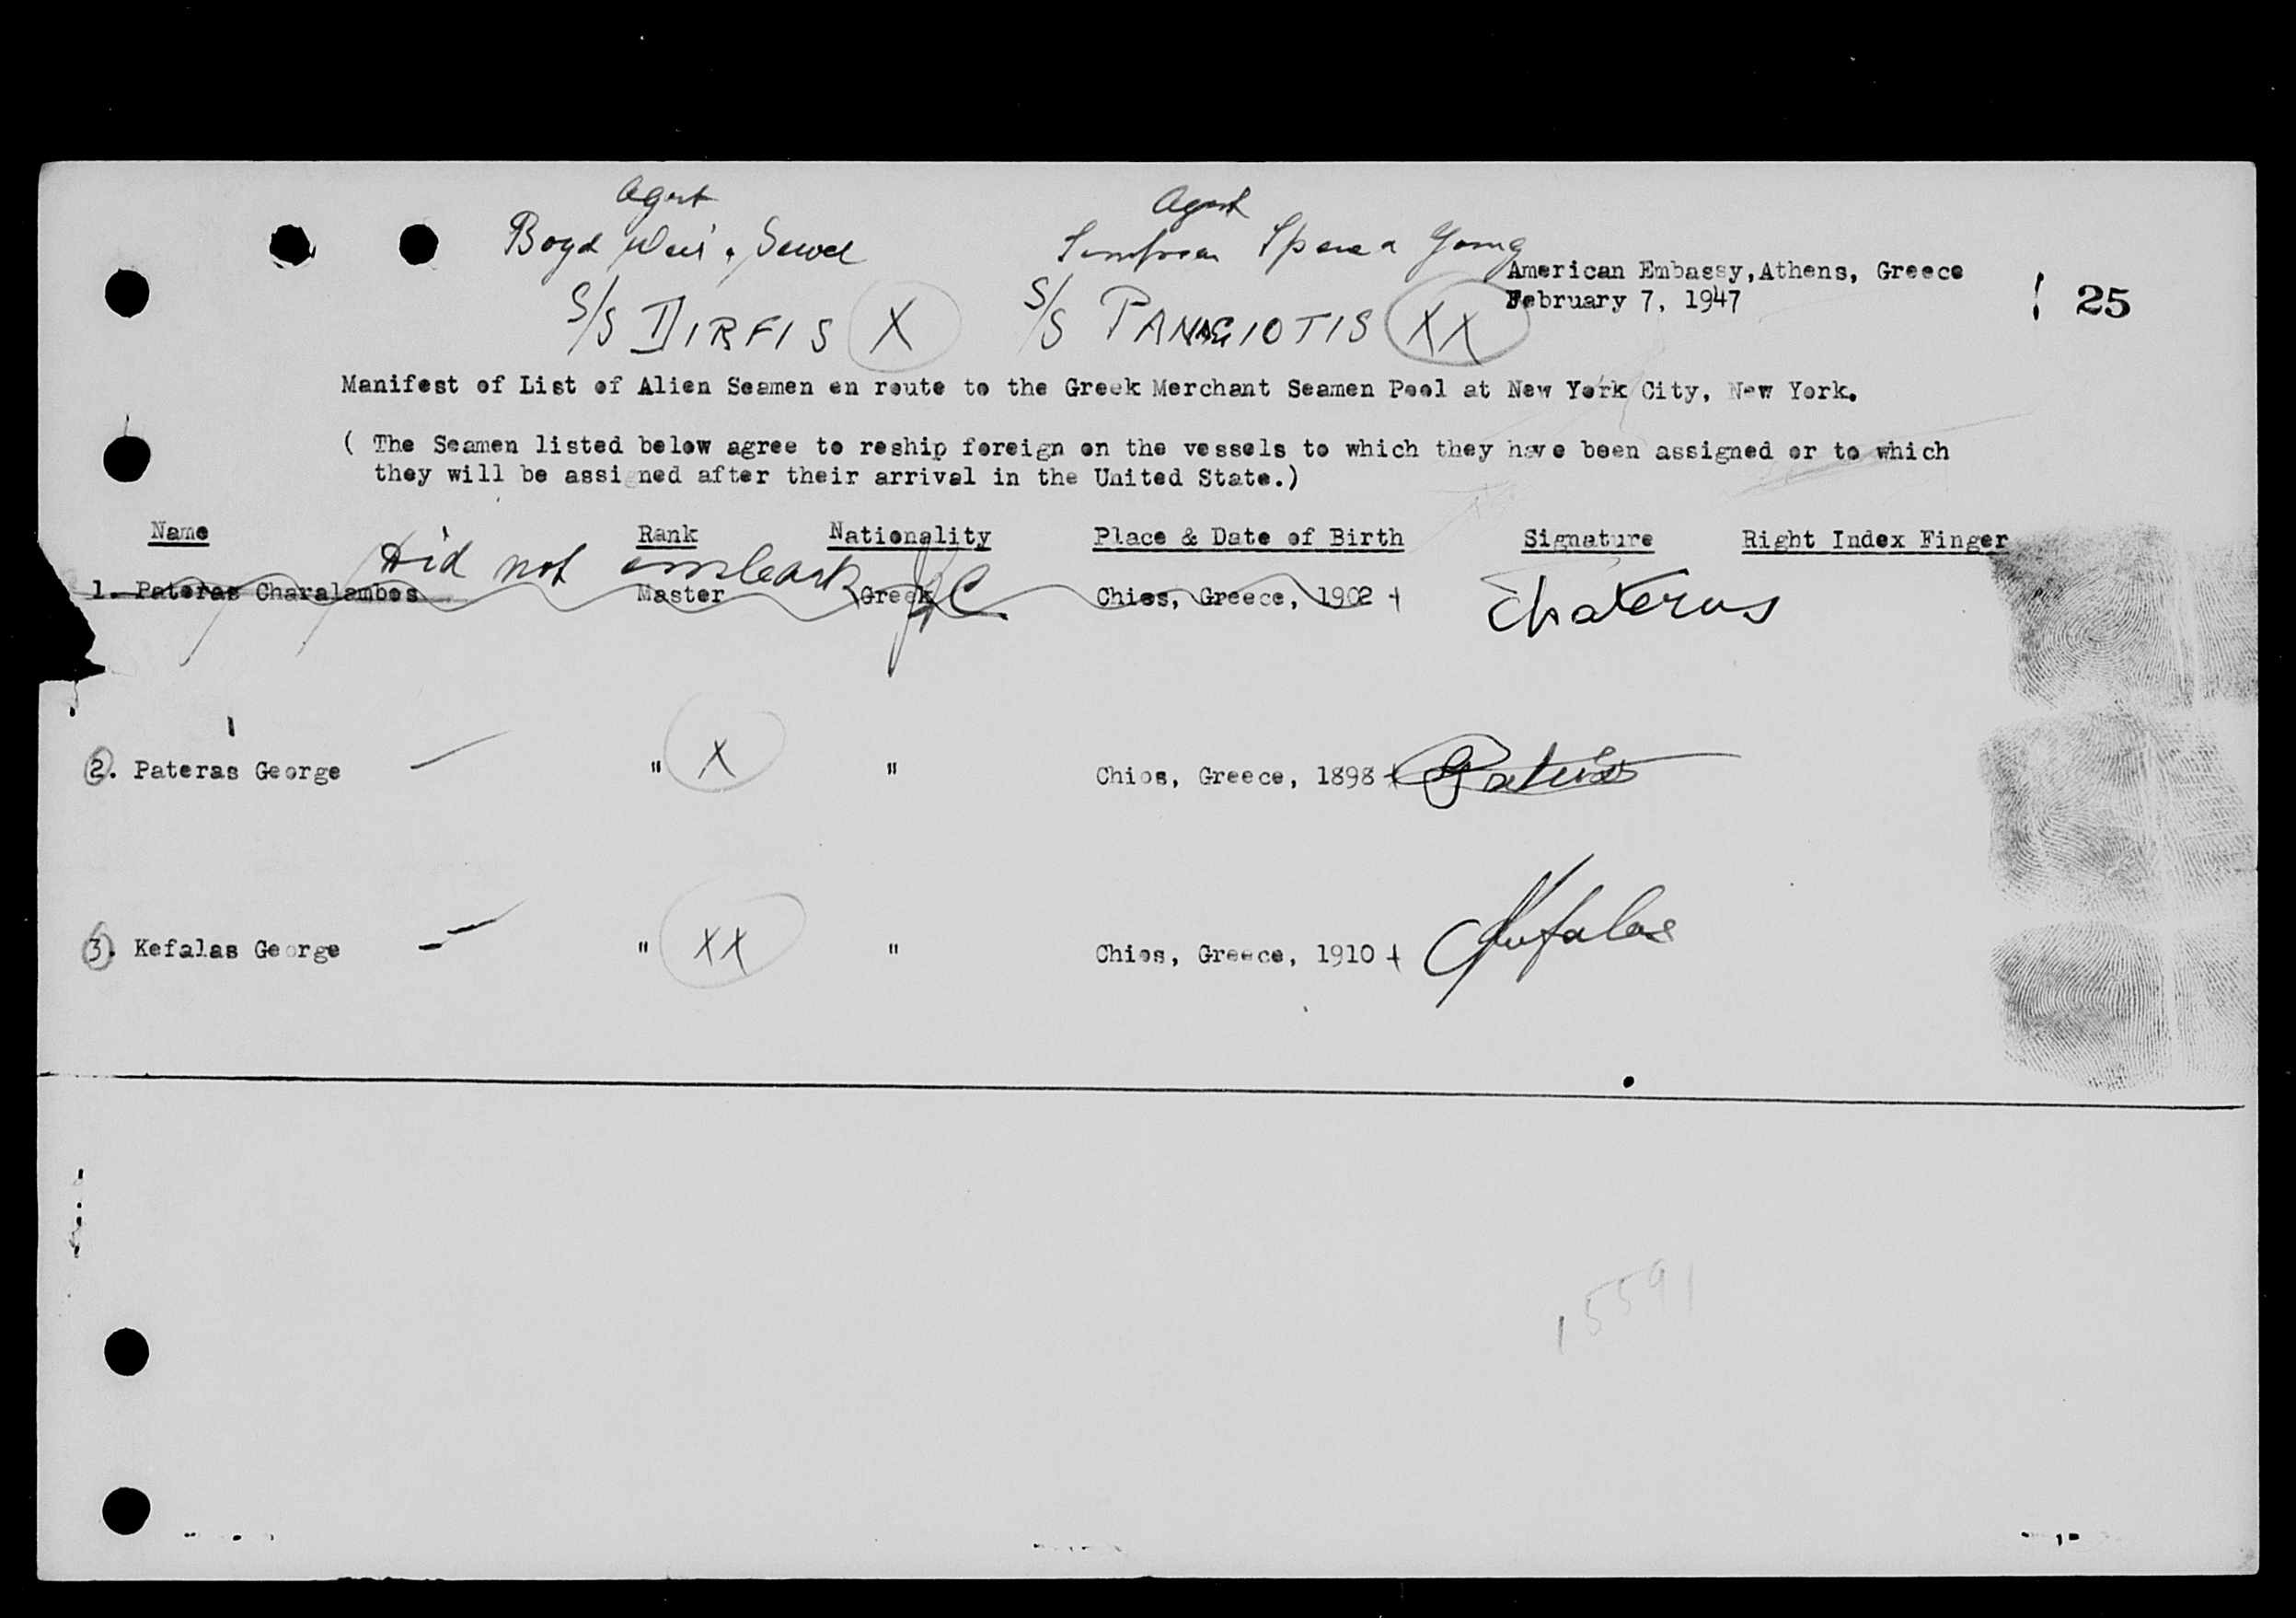 Agent
Agent
Boyd Weir & Sewel
Simpson Spence & Young
S/S DIRFIS X
S/S PANAGIOTIS XX
American Embassy, Athens, Greece
February 7, 1947
25
Manifest of List of Alien Seamen en route to the Greek Merchant Seamen Pool at New York City, New York.
( The Seamen listed below agree to reship foreign on the vessels to which they have been assigned or to which
they will be assigned after their arrival in the United State.)
Name Rank Nationality Place & Date of Birth Signature Right Index Finger
Did not embark
1. Pateras Charalambos Master Greek Chios, Greece, 1902 +
2. Pateras George " X " Chios, Greece, 1898 +
3. Kefalas George " XX " Chios, Greece, 1910 + Kefalas
15591